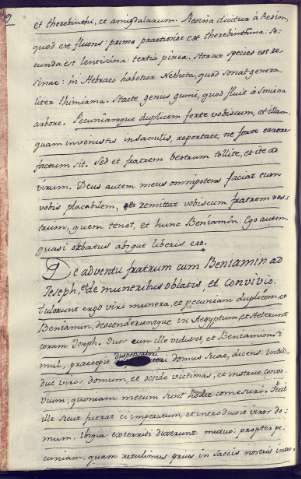 et therebinthi, et amigdalarum. Resina dicitur à Resin,
quod est fluens: prima preciosior est therebinthina, se-
cunda est lentiscina tertia pinea.
sinae: in Hebraeo habetur Nechota, quod sonat genera-
liter thimiama. Stacte genus gumi, quod fluit à
arbore. Pecuniamque duplicem ferte vobiscum, et illam
quam invenistis in sacculis, reportate, ne forte errore
factum sit. Sed et fratrem vestrum tollite, et ite ad
virum. Deus autem meus omnipotens faciat eum
vobis placabilem, et remittat vobiscum fratrem ves-
trum, quem tenet, et hunc Beniamin. Ego autem
quasi orbatus absque liberis ero.
De adventu fratrum cum Beniamin ad
Ioseph, & de muneribus oblatis, et convivio.
Tulerunt ergo viri munera, et pecuniam duplicem, et
Beniamin, descenderuntque in Aegyptum et steterunt
coram Ioseph. Quos cum ille vidisset, et Beniamin si-
mul, praecepit dispensatori domus suae, dicens: intro-
duc viros domum, et occide victimas, et instrue convi-
vium, quoniam mecum sunt hodie comesturi. Fecit
ille sicut fuerat ei imperatum et introduxit viros do-
mum. Ibique exterriti dixerunt mutuo: propter pe-
cuniam, quam retulimus prius in saccis nostris intro-